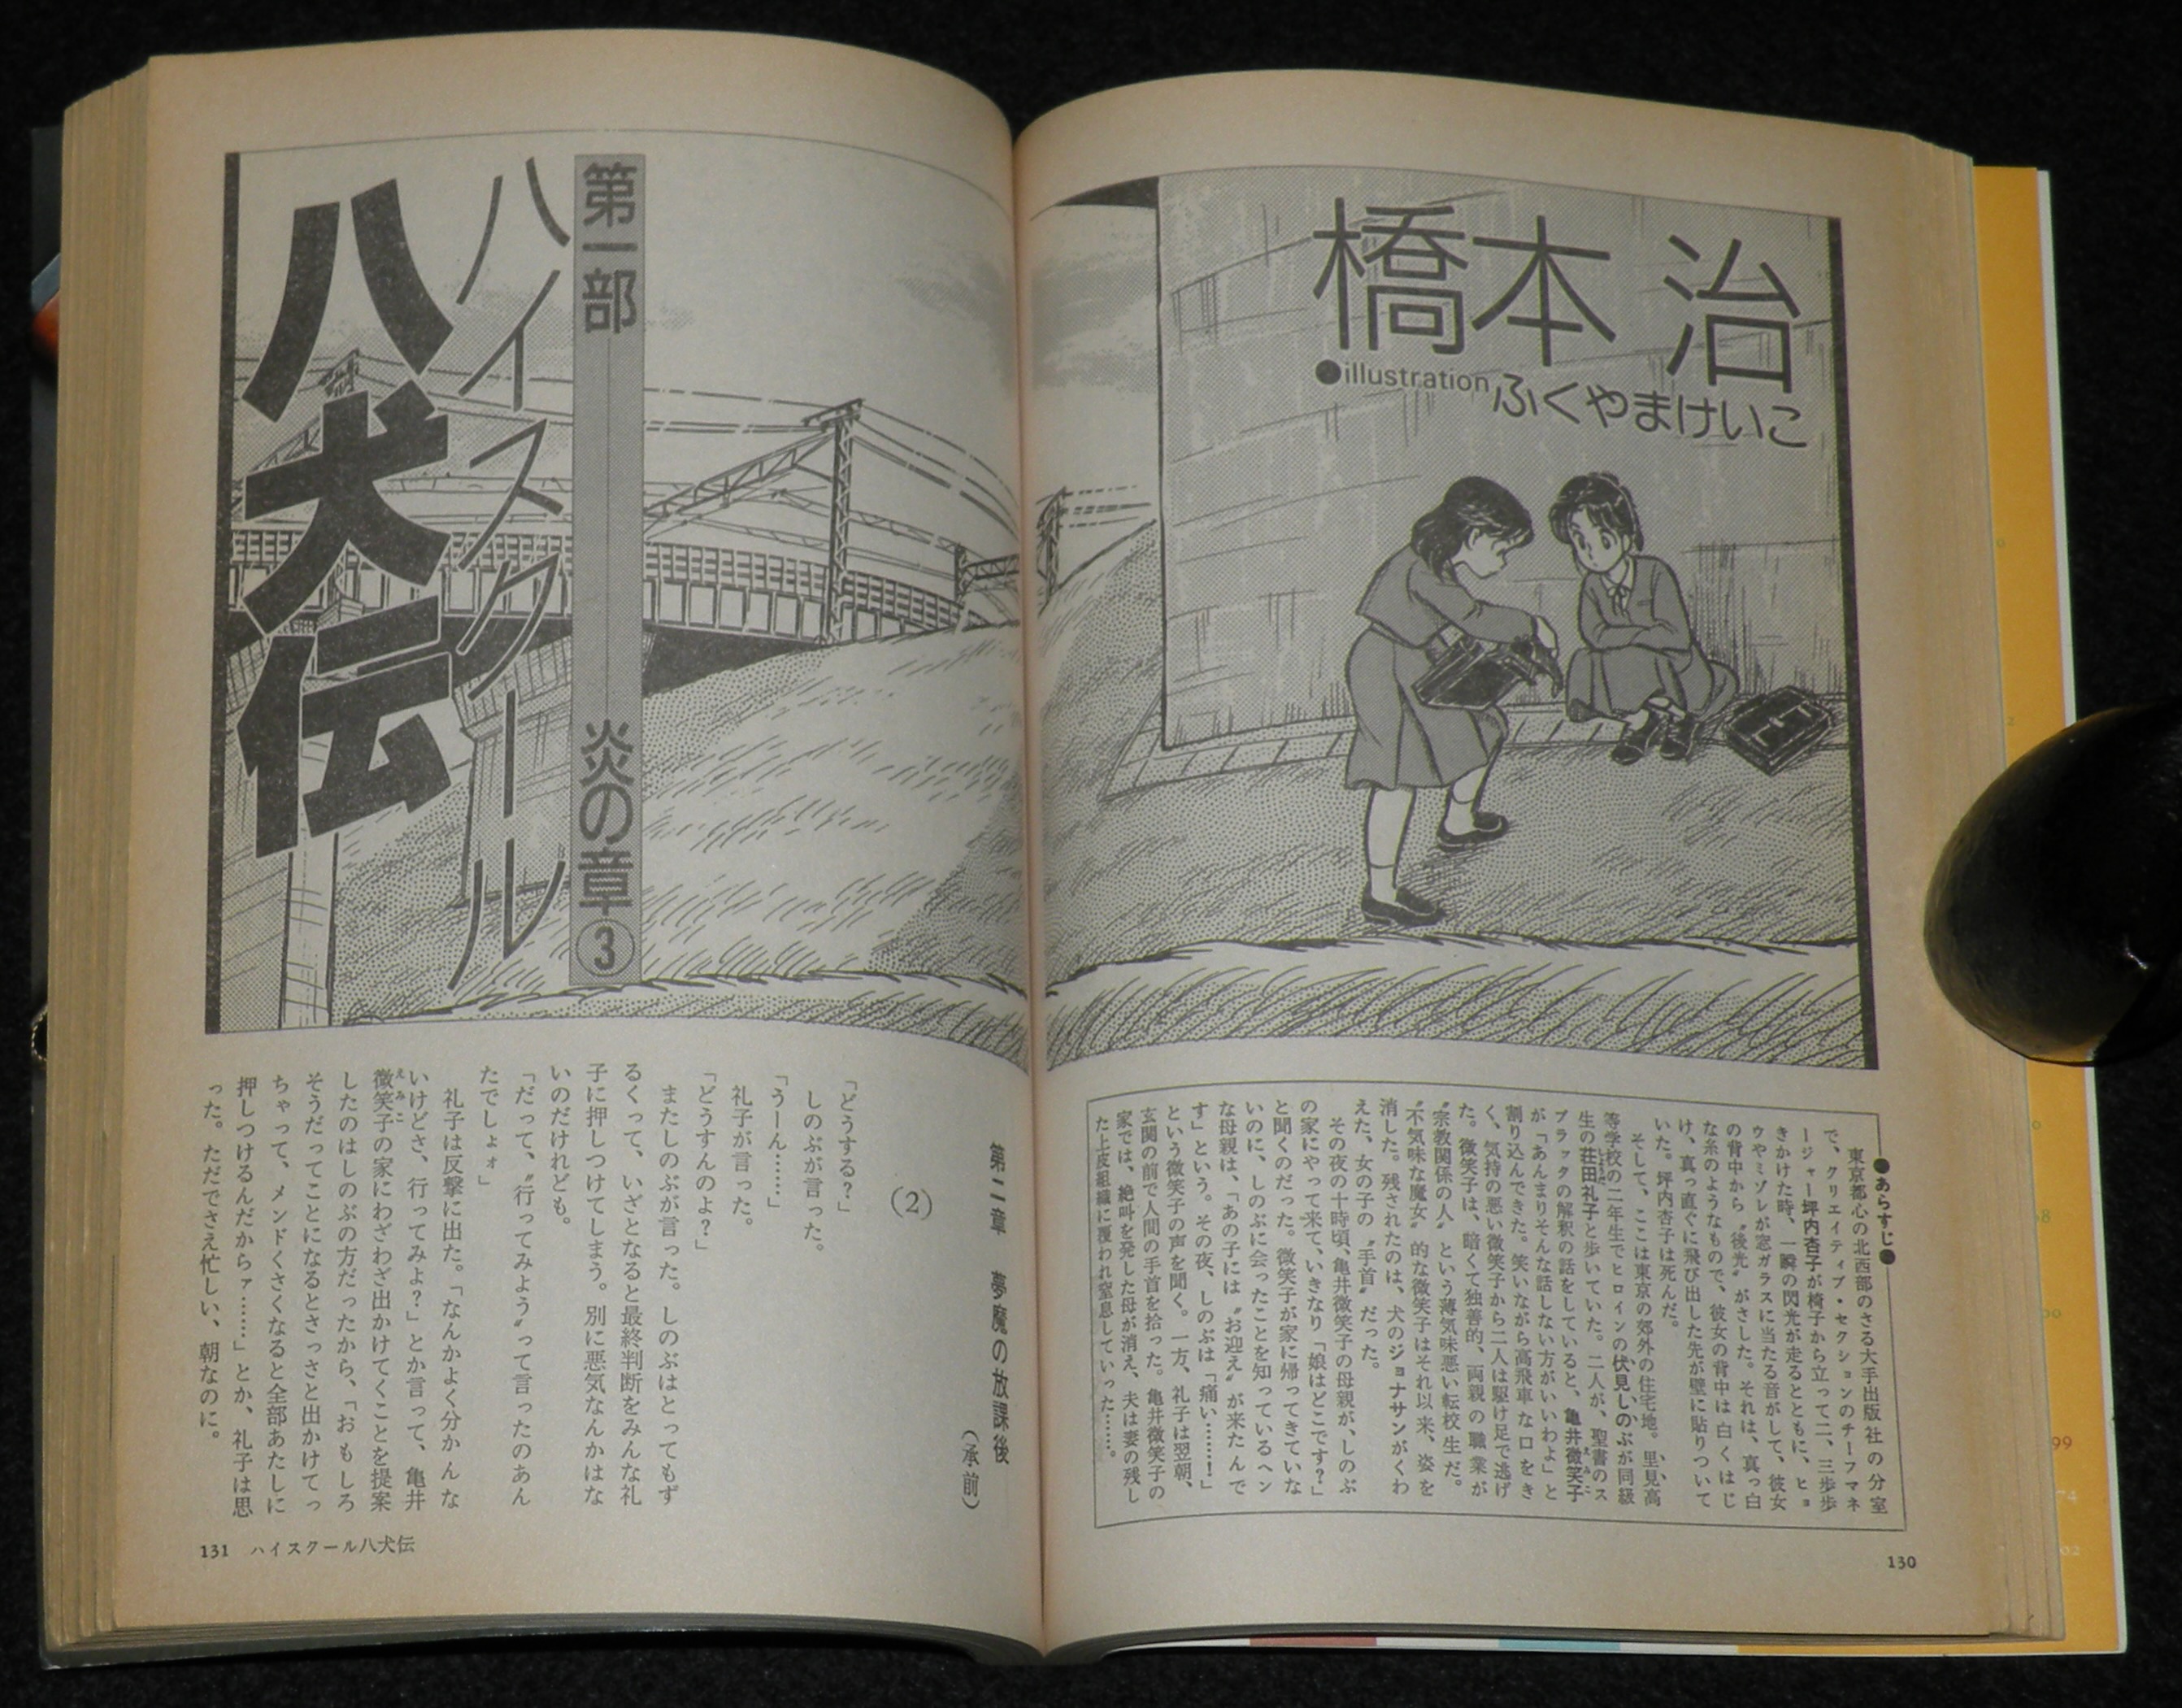 橋本 治
●illustration ふくやまけいこ
●あらすじ●
東京都心の北西部のさる大手出版社の分室
で、クリエイティブ・セクションのチーフマネ
ージャー坪内杏子が椅子から立って二、三歩歩
きかけた時、一瞬の閃光が走るとともに、ヒョ
ウやミゾレが窓ガラスに当たる音がして、彼女
の背中から〝後光〟がさした。それは、真っ白
な糸のようなもので、彼女の背中は白くはじ
け、真っ直ぐに飛び出した先が壁に貼りついて
いた。坪内杏子は死んだ。
そして、ここは東京の郊外の住宅地。里見高
等学校の二年生でヒロインの伏見しのぶが同級
生の荘田礼子と歩いていた。二人が、聖書のス
プラッタの解釈の話をしていると、亀井微笑子
が「あんまりそんな話しない方がいいわよ」と
割り込んできた。笑いながら高飛車な口をき
く、気持の悪い微笑子から二人は駆け足で逃げ
た。微笑子は、暗くて独善的、両親の職業が
〝宗教関係の人〟という薄気味悪い転校生だ。
〝不気味な魔女〟的な微笑子はそれ以来、姿を
消した。残されたのは、犬のジョナサンがくわ
えた、女の子の〝手首〟だった。
その夜の十時頃、亀井微笑子の母親が、しのぶ
の家にやって来て、いきなり「娘はどこです?」
と聞くのだった。微笑子が家に帰ってきていな
いのに、しのぶに会ったことを知っているヘン
な母親は、「あの子には〝お迎え〟が来たんで
す」という。その夜、しのぶは「痛い………!」
という微笑子の声を聞く。一方、礼子は翌朝、
玄関の前で人間の手首を拾った。亀井微笑子の
家では、絶叫を発した母が消え、夫は妻の残し
た上皮組織に覆われ窒息していった……。
130
第一部 炎の章③
ハイスクール
八犬伝
第二章 夢魔の放課後
(承前)
(2)
「どうする?」
しのぶが言った。
「うーん……」
礼子が言った。
「どうすんのよ?」
またしのぶが言った。しのぶはとってもず
るくって、いざとなると最終判断をみんな礼
子に押しつけてしまう。別に悪気なんかはな
いのだけれども。
「だって、〝行ってみよう〟って言ったのあん
たでしょォ」
礼子は反撃に出た。「なんかよく分かんな
いけどさ、行ってみよ?」とか言って、亀井
微笑子の家にわざわざ出かけてくことを提案
したのはしのぶの方だったから、「おもしろ
そうだってことになるとさっさと出かけてっ
ちゃって、メンドくさくなると全部あたしに
押しつけるんだからァ……」とか、礼子は思
った。ただでさえ忙しい、朝なのに。
131 ハイスクール八犬伝